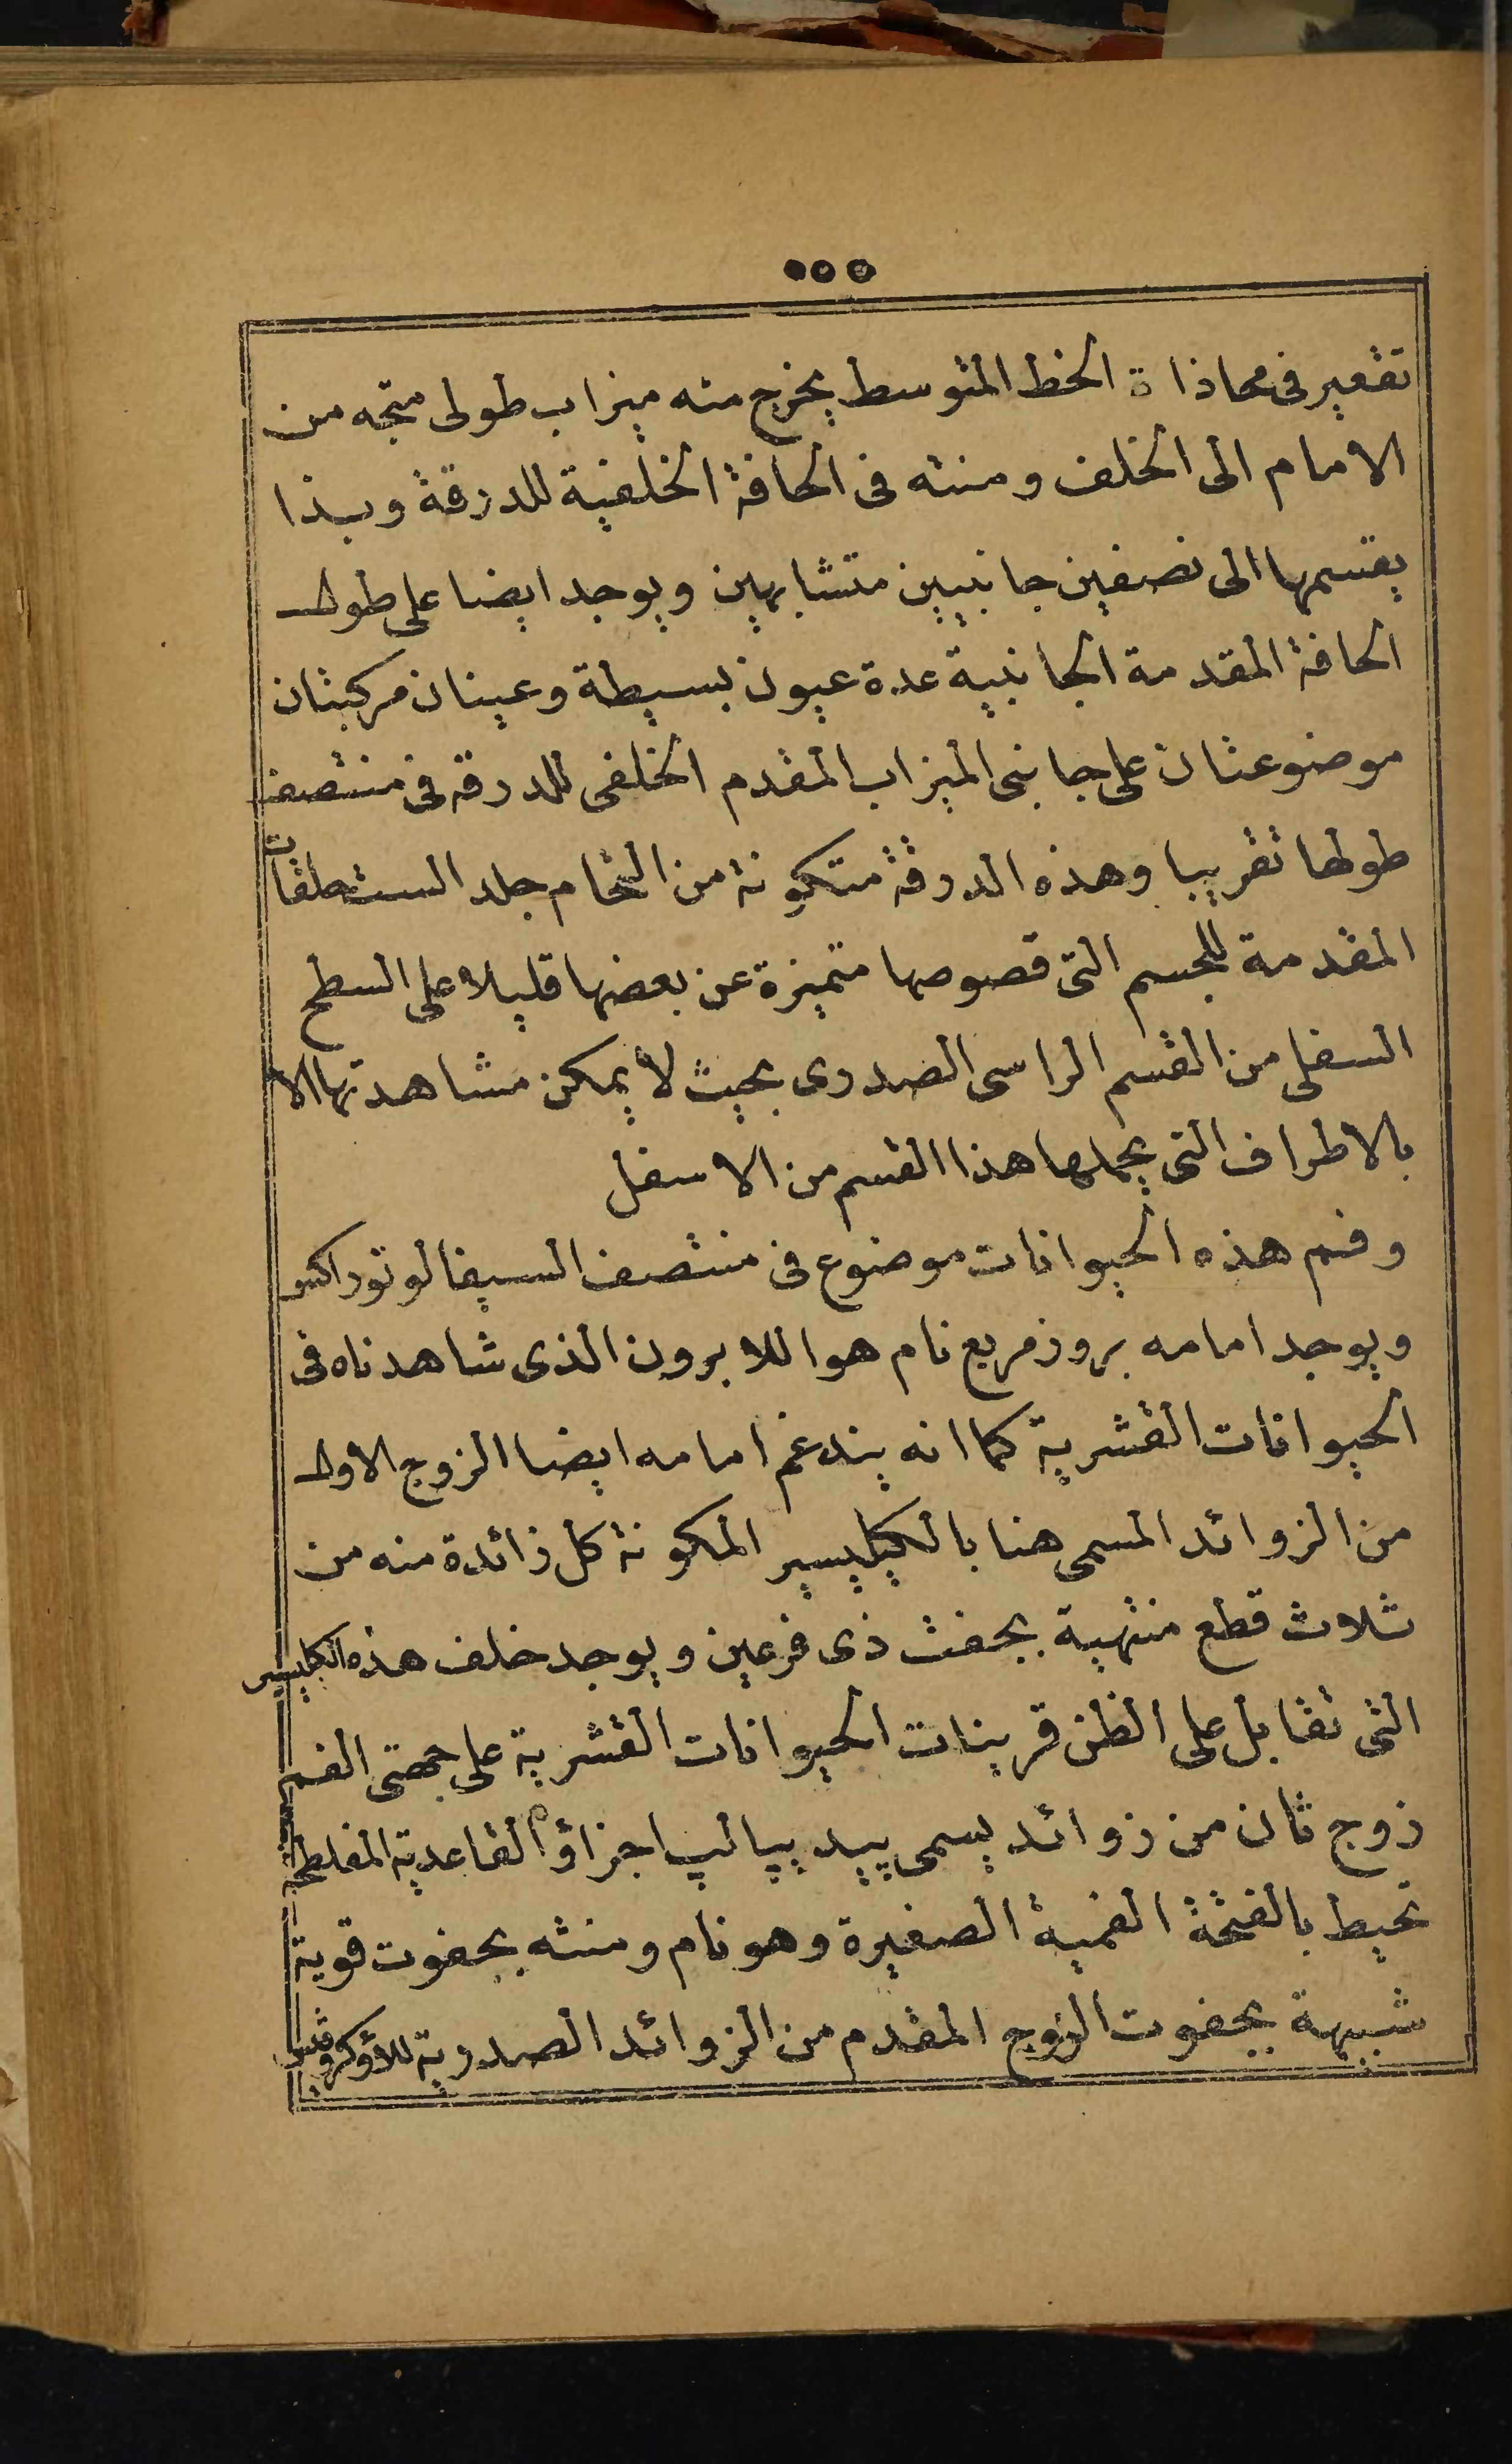 ٥٥٥
تقعير فى محاذاة الخط المتوسط يخرج منه ميزاب طولى متجه من
الامام الى الخلف ومنته فى الحافة الخلفية للدرقة وبذا
يقسمها الى نصفين جانبيين متشابهين ويوجد ايضا على طول
الحافة المقدمة الجانبية عدة عيون بسيطة وعينان مركبتان
موضوعتان على جانبى الميزاب المقدم الخلفى للدرقه فى منتصف
طولها تقريبا وهذه الدرقة متكونة من التحام جلد الست حلقات
المقدمة للجسم التى قصوصها متميزة عن بعضها قليلا على السطح
السفلى من القسم الراسى الصدرى بحيث لا يمكن مشاهدتها الا
بالاطراف التى يحملها هذا القسم من الاسفل
وفم هذه الحيوانات موضوع فى منتصف السيفالوتوراكس
ويوجد امامه بروز مربع نام هو اللابرون الذى شاهدناه فى
الحيوانات القشرية كما انه يندغم امامه ايضا الزوج الاول
من الزوائد المسمى هنا بالكيليسير المكونة كل زائدة منه من
ثلاث قطع منتهية بجفت ذى فرعين ويوجد خلف هذه الكليسير
التى تقابل على الظن قرينات الحيوانات القشرية على جهتى الفم
زوج ثان من زوائد يسمى پيديپالپ اجزاؤه القاعدية المفلطحة
تحيط بالفتحة الفمية الصغيرة وهو نام ومنته بجفوت قوية
شبيهة بجفوت الزوج المقدم من الزوائد الصدرية